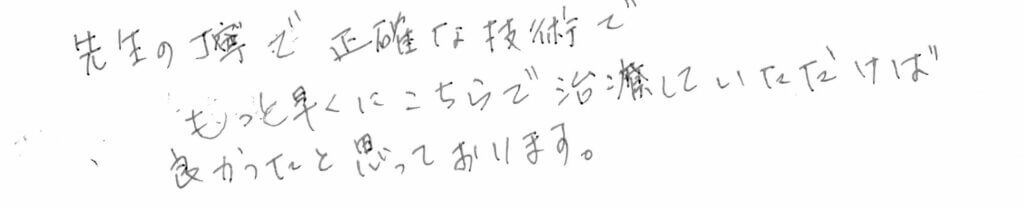 先生の丁寧で正確な技術で
もっと早くにこちらで治療していただければ
良かったと思っております。